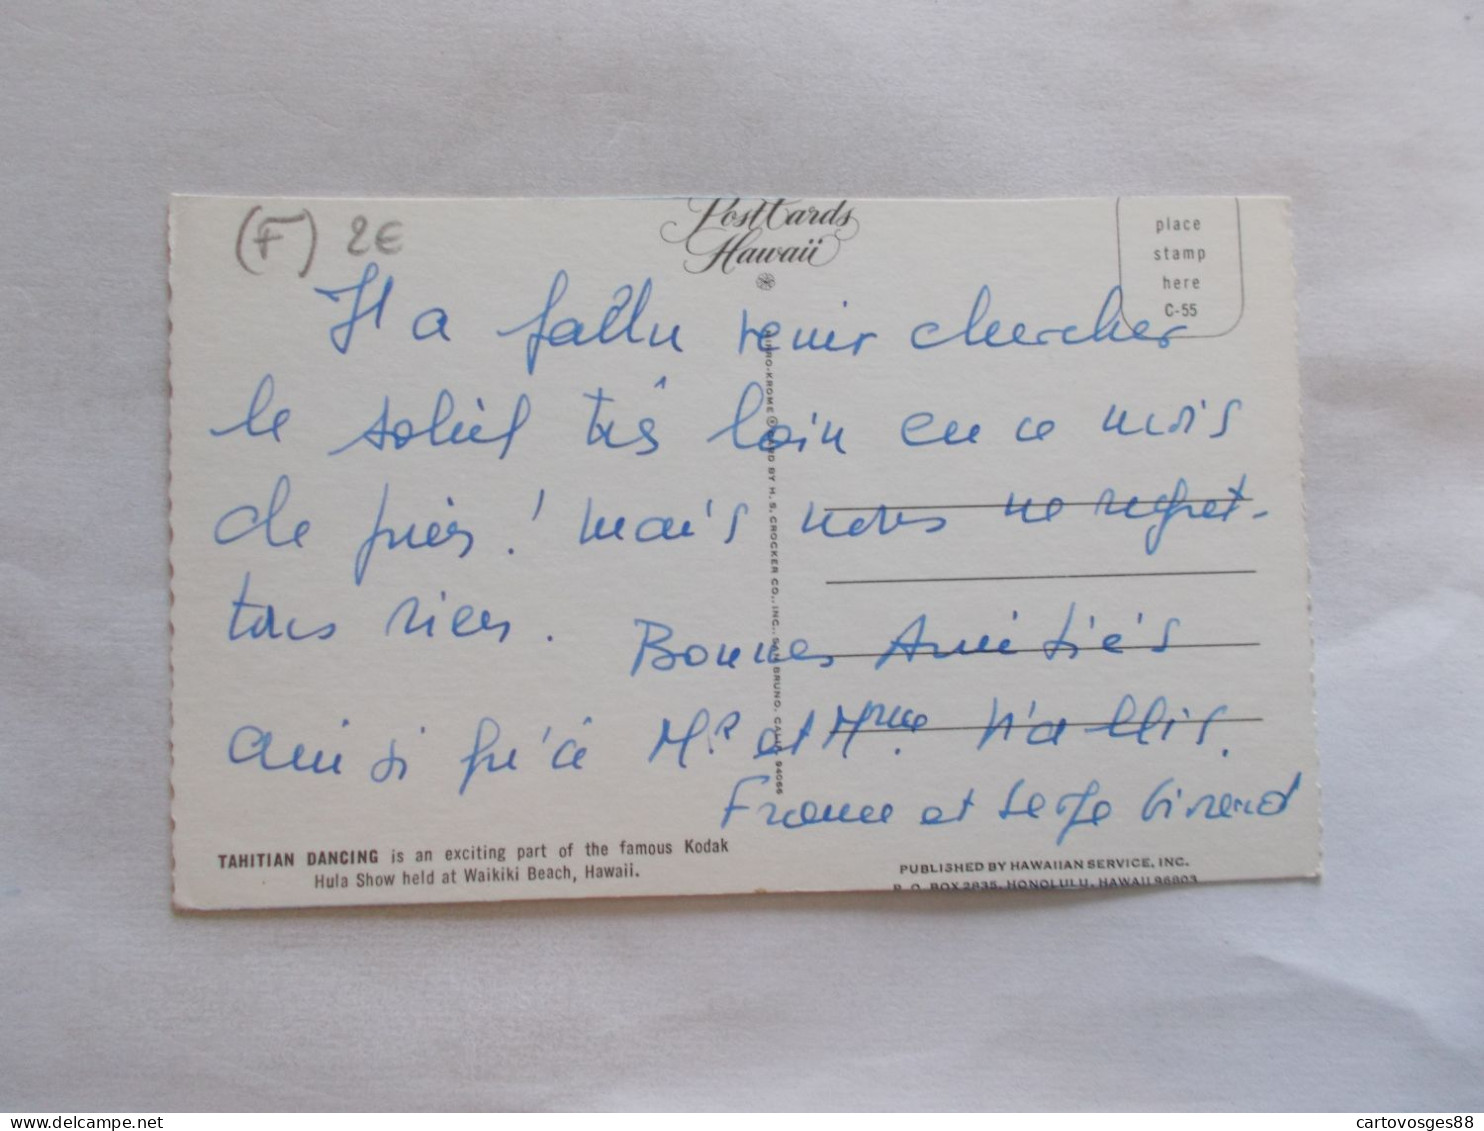 (F) 2€
PostCards
Hawaii
place
stamp
here
C-55
Il a fallu venir chercher
le soleil très loin en ce mois
de juin! mais nous ne regret-
tons rien.
Bonnes Amitiés
ainsi qu'à Mr et Mme
France et Serge Girard
MIRRO-KROME ® CARD BY H. S. CROCKER CO., INC., SAN BRUNO, CALIF. 94066
TAHITIAN DANCING is an exciting part of the famous Kodak
Hula Show held at Waikiki Beach, Hawaii.
PUBLISHED BY HAWAIIAN SERVICE, INC.
P. O. BOX 2835, HONOLULU, HAWAII 96803
cartovosges88